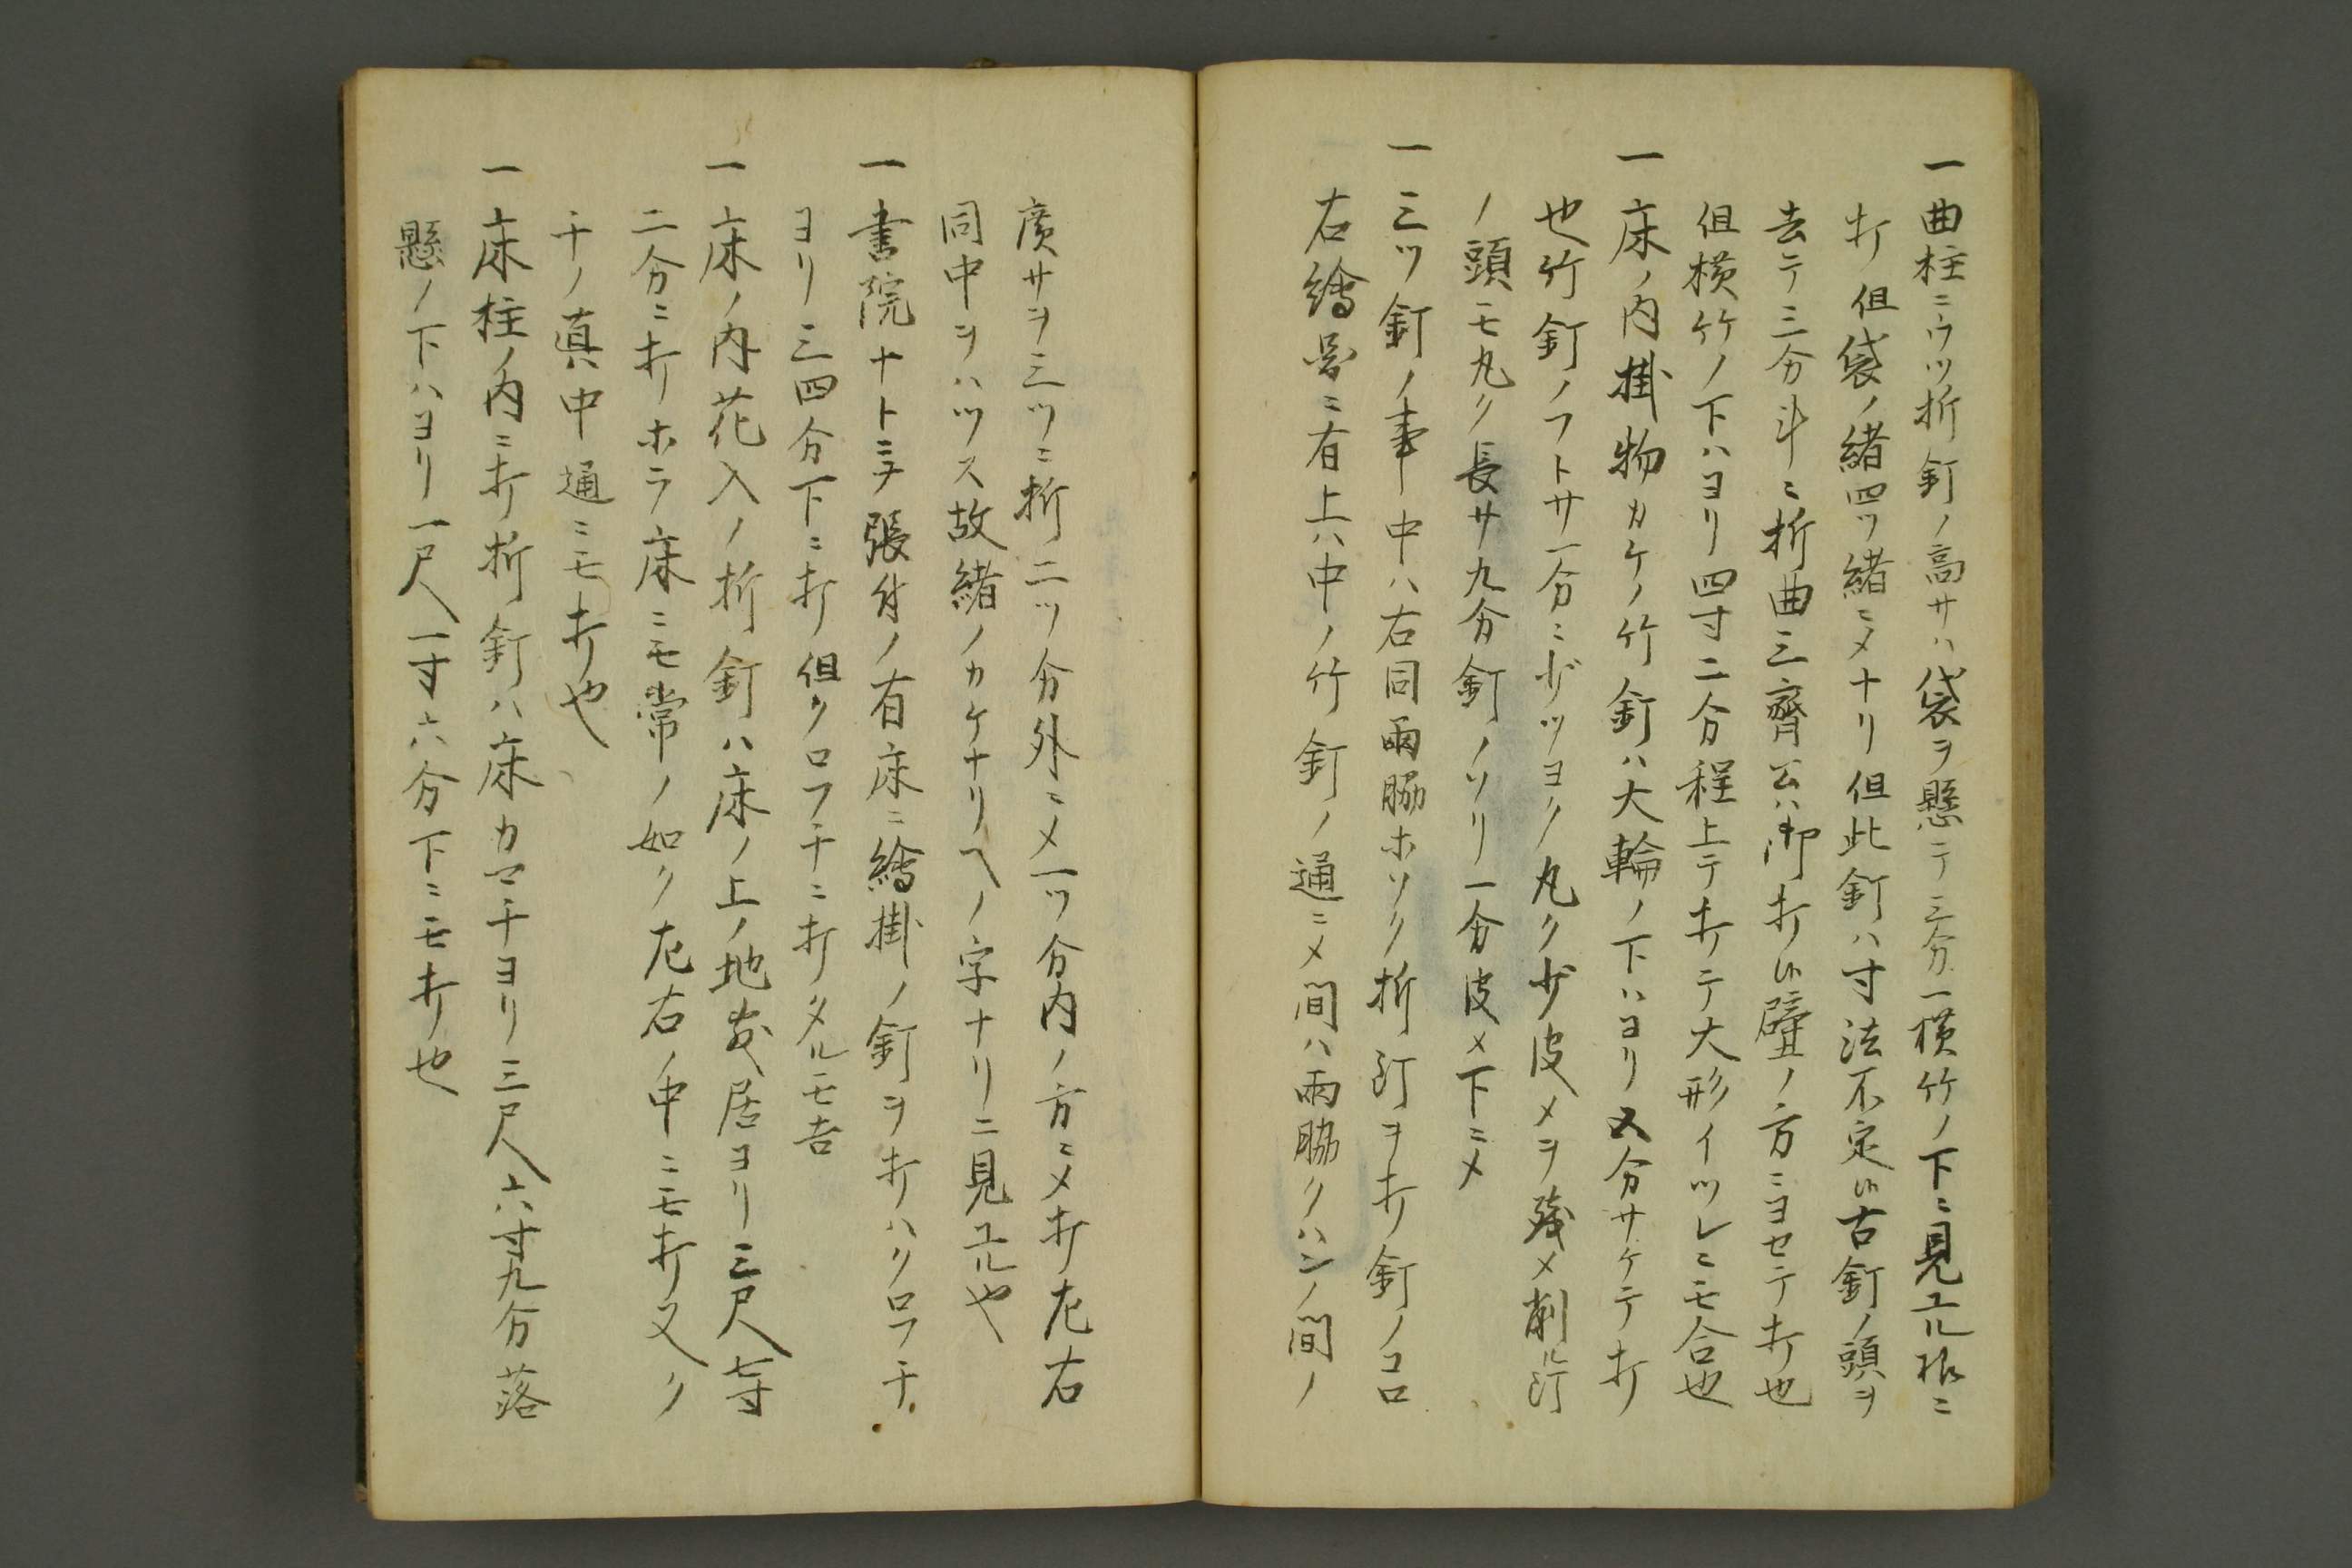 一曲柱ニウツ折釘ノ高サハ袋ヲ懸テ三分一横竹ノ下ニ見ユル様ニ
打但袋ノ緒四ツ緒ニメナリ但此釘ハ寸法不定候古釘ノ頭ヲ
去テ三分斗ニ折曲三齋公ハ御打候壁ノ方ニヨセテ打也
但横竹ノ下ハヨリ四寸二分程上テ打テ大形イツレニモ合也
一床ノ内掛物カケノ竹釘ハ大輪ノ下ハヨリ五分サケテ打
也竹釘ノフトサ一分ニ少ツヨク丸ク少皮メヲ残メ削ル釘
ノ頭モ丸ク長サ九分釘ノソリ一分皮メ下ニメ
一三ツ釘ノ事中ハ右同両脇ホソク折釘ヲ打釘ノコロ
右繪図ニ有上ハ中ノ竹釘ノ通ニメ間ハ両脇クハンノ間ノ
廣サヲ三ツニ折二ツ分外ニメ一ツ分内ノ方ニメ打左右
同中ヲハツス故緒ノカケナリヘノ字ナリニ見ユルや
一書院ナトニテ張付ノ有床ニ繪掛ノ釘ヲ打ハクロフチ
ヨリ三四分下ニ打但クロフチニ打タルモ吉
一床ノ内花入ノ折釘ハ床ノ上ノ地敷居ヨリ三尺七寸
二分ニ打ホラ床ニモ常ノ如ク左右ノ中ニモ打又ク
チノ真中通ニモ打や
一床柱ノ内ニ打折釘ハ床カマチヨリ三尺六寸九分落
懸ノ下ハヨリ一尺一寸六分下ニモ打也